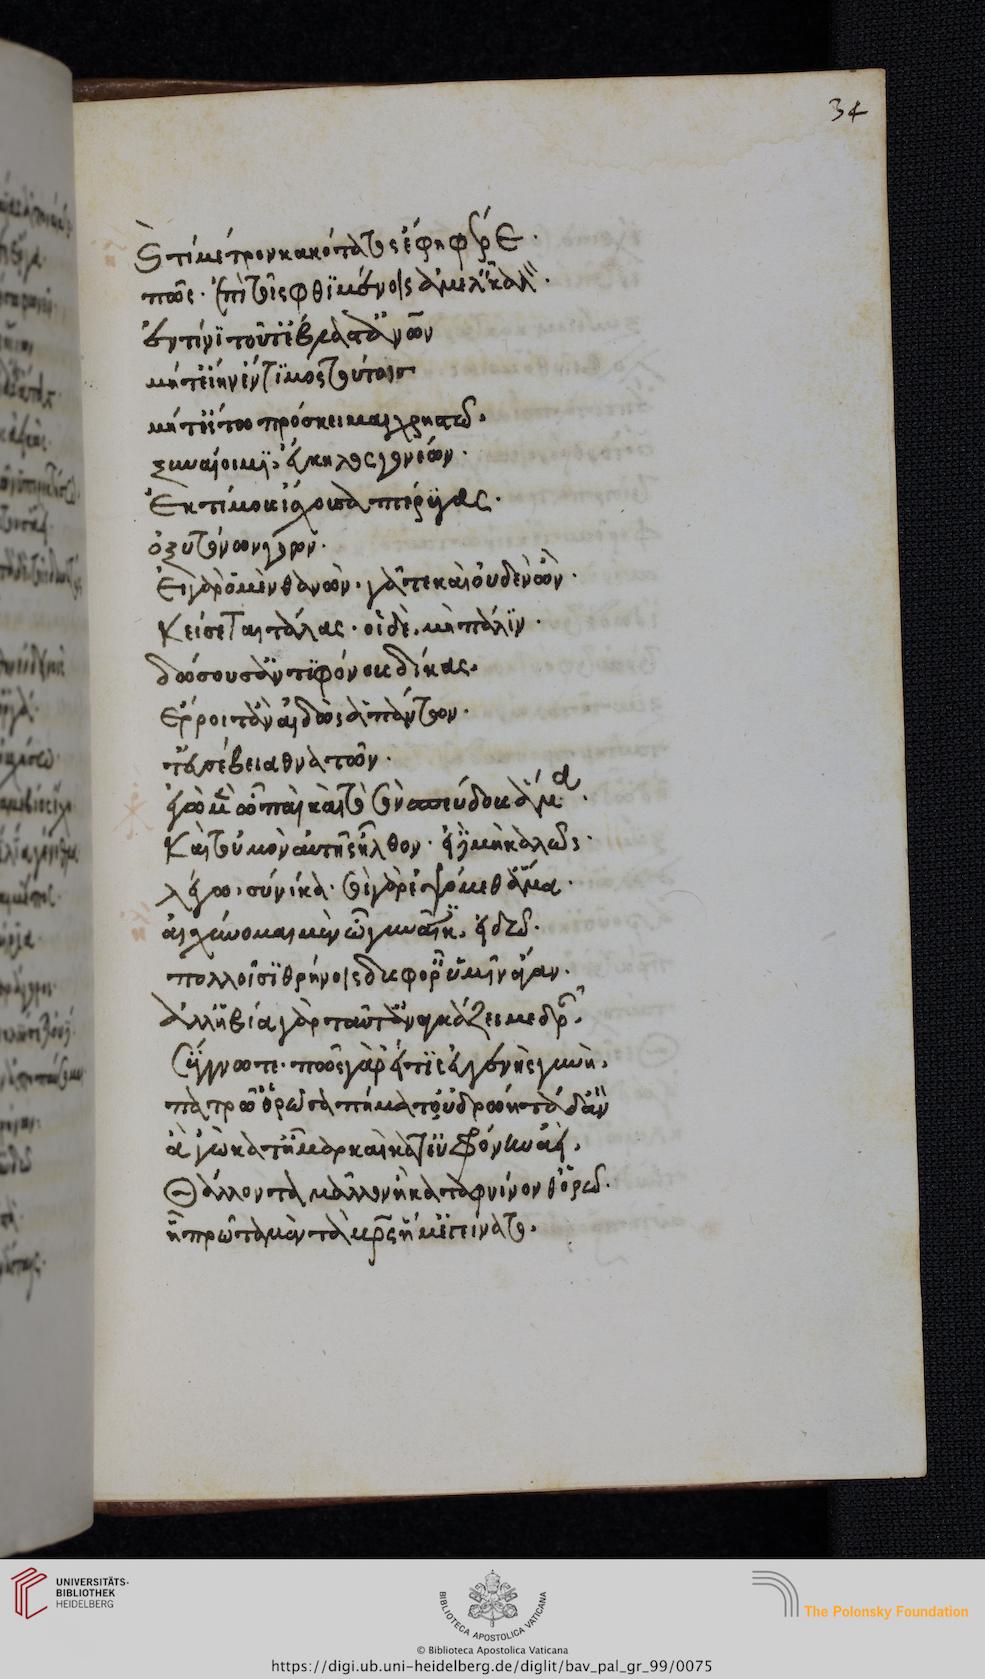 34
τί μέτρον κακότατος ἔφη φρ Ε.
πῶς. ἐπὶ τοῖς φθϊμένοις ἀμελεῖν καλόν.
ἐν τίνϊ τοῦτ' ἔβλαστ' ἀνθρώπων
μήτ' εἴην ἔντϊμος τούτοις
μήτ' εἴ τω πρόσκειμαι χρηστῷ.
ξυναίοιμϊ, ἔκηλος γονέων.
Ἐκτίμους ἴσχουσα πτέρυγας.
ὀξυτόνων γόων.
Εἰ γὰρ ὁ μὲν θανὼν. γᾶ τε καὶ οὐδὲν ὢν.
Κείσεται τάλας. οἱ δὲ, μὴ πάλϊν.
δώσουσ' ἀντϊφόνους δίκας.
ἔρροι τ' ἂν αἰδὼς ἁπάντων.
τ' εὐσέβεια θνατῶν.
ἐγὼ μὲν ὦ παῖ καὶ τὸ σὸν σπεύδουσ' ἅμα.
Καὶ τοὐμὸν αὐτῆς ἦλθον. εἰ δὲ μὴ καλῶς.
λέγω, σὺ νίκα. σοὶ γὰρ ἑψόμεθ' ἅμα.
αἰσχύνομαι μὲν ὦ γυναῖκες, εἰ δοκῶ.
πολλοῖσϊ θρήνοις δυσφορεῖν ὑμῖν ἄγαν.
ἀλλ' ἡ βία γὰρ ταῦτ' ἀναγκάζει με δρᾶν.
σύγγνωτε. πῶς γὰρ ἥτϊς εὐγενὴς γυνὴ.
πατρῷ' ὁρῶσα πήματ' οὐ δρῴη τάδ' ἂν
ἁ 'γὼ κατ' ἦμαρ καὶ κατ' εὐφρόνην ἀεὶ.
Θάλλοντα μᾶλλον ἢ καταφθίνονθ' ὁρῶ.
ἧ πρῶτα μὲν τὰ μητρὸς ἥ μ' ἐγείνατο.
UNIVERSITÄTS-
BIBLIOTHEK
HEIDELBERG
BIBLIOTECA APOSTOLICA VATICANA
The Polonsky Foundation
© Biblioteca Apostolica Vaticana
https://digi.ub.uni-heidelberg.de/diglit/bav_pal_gr_99/0075